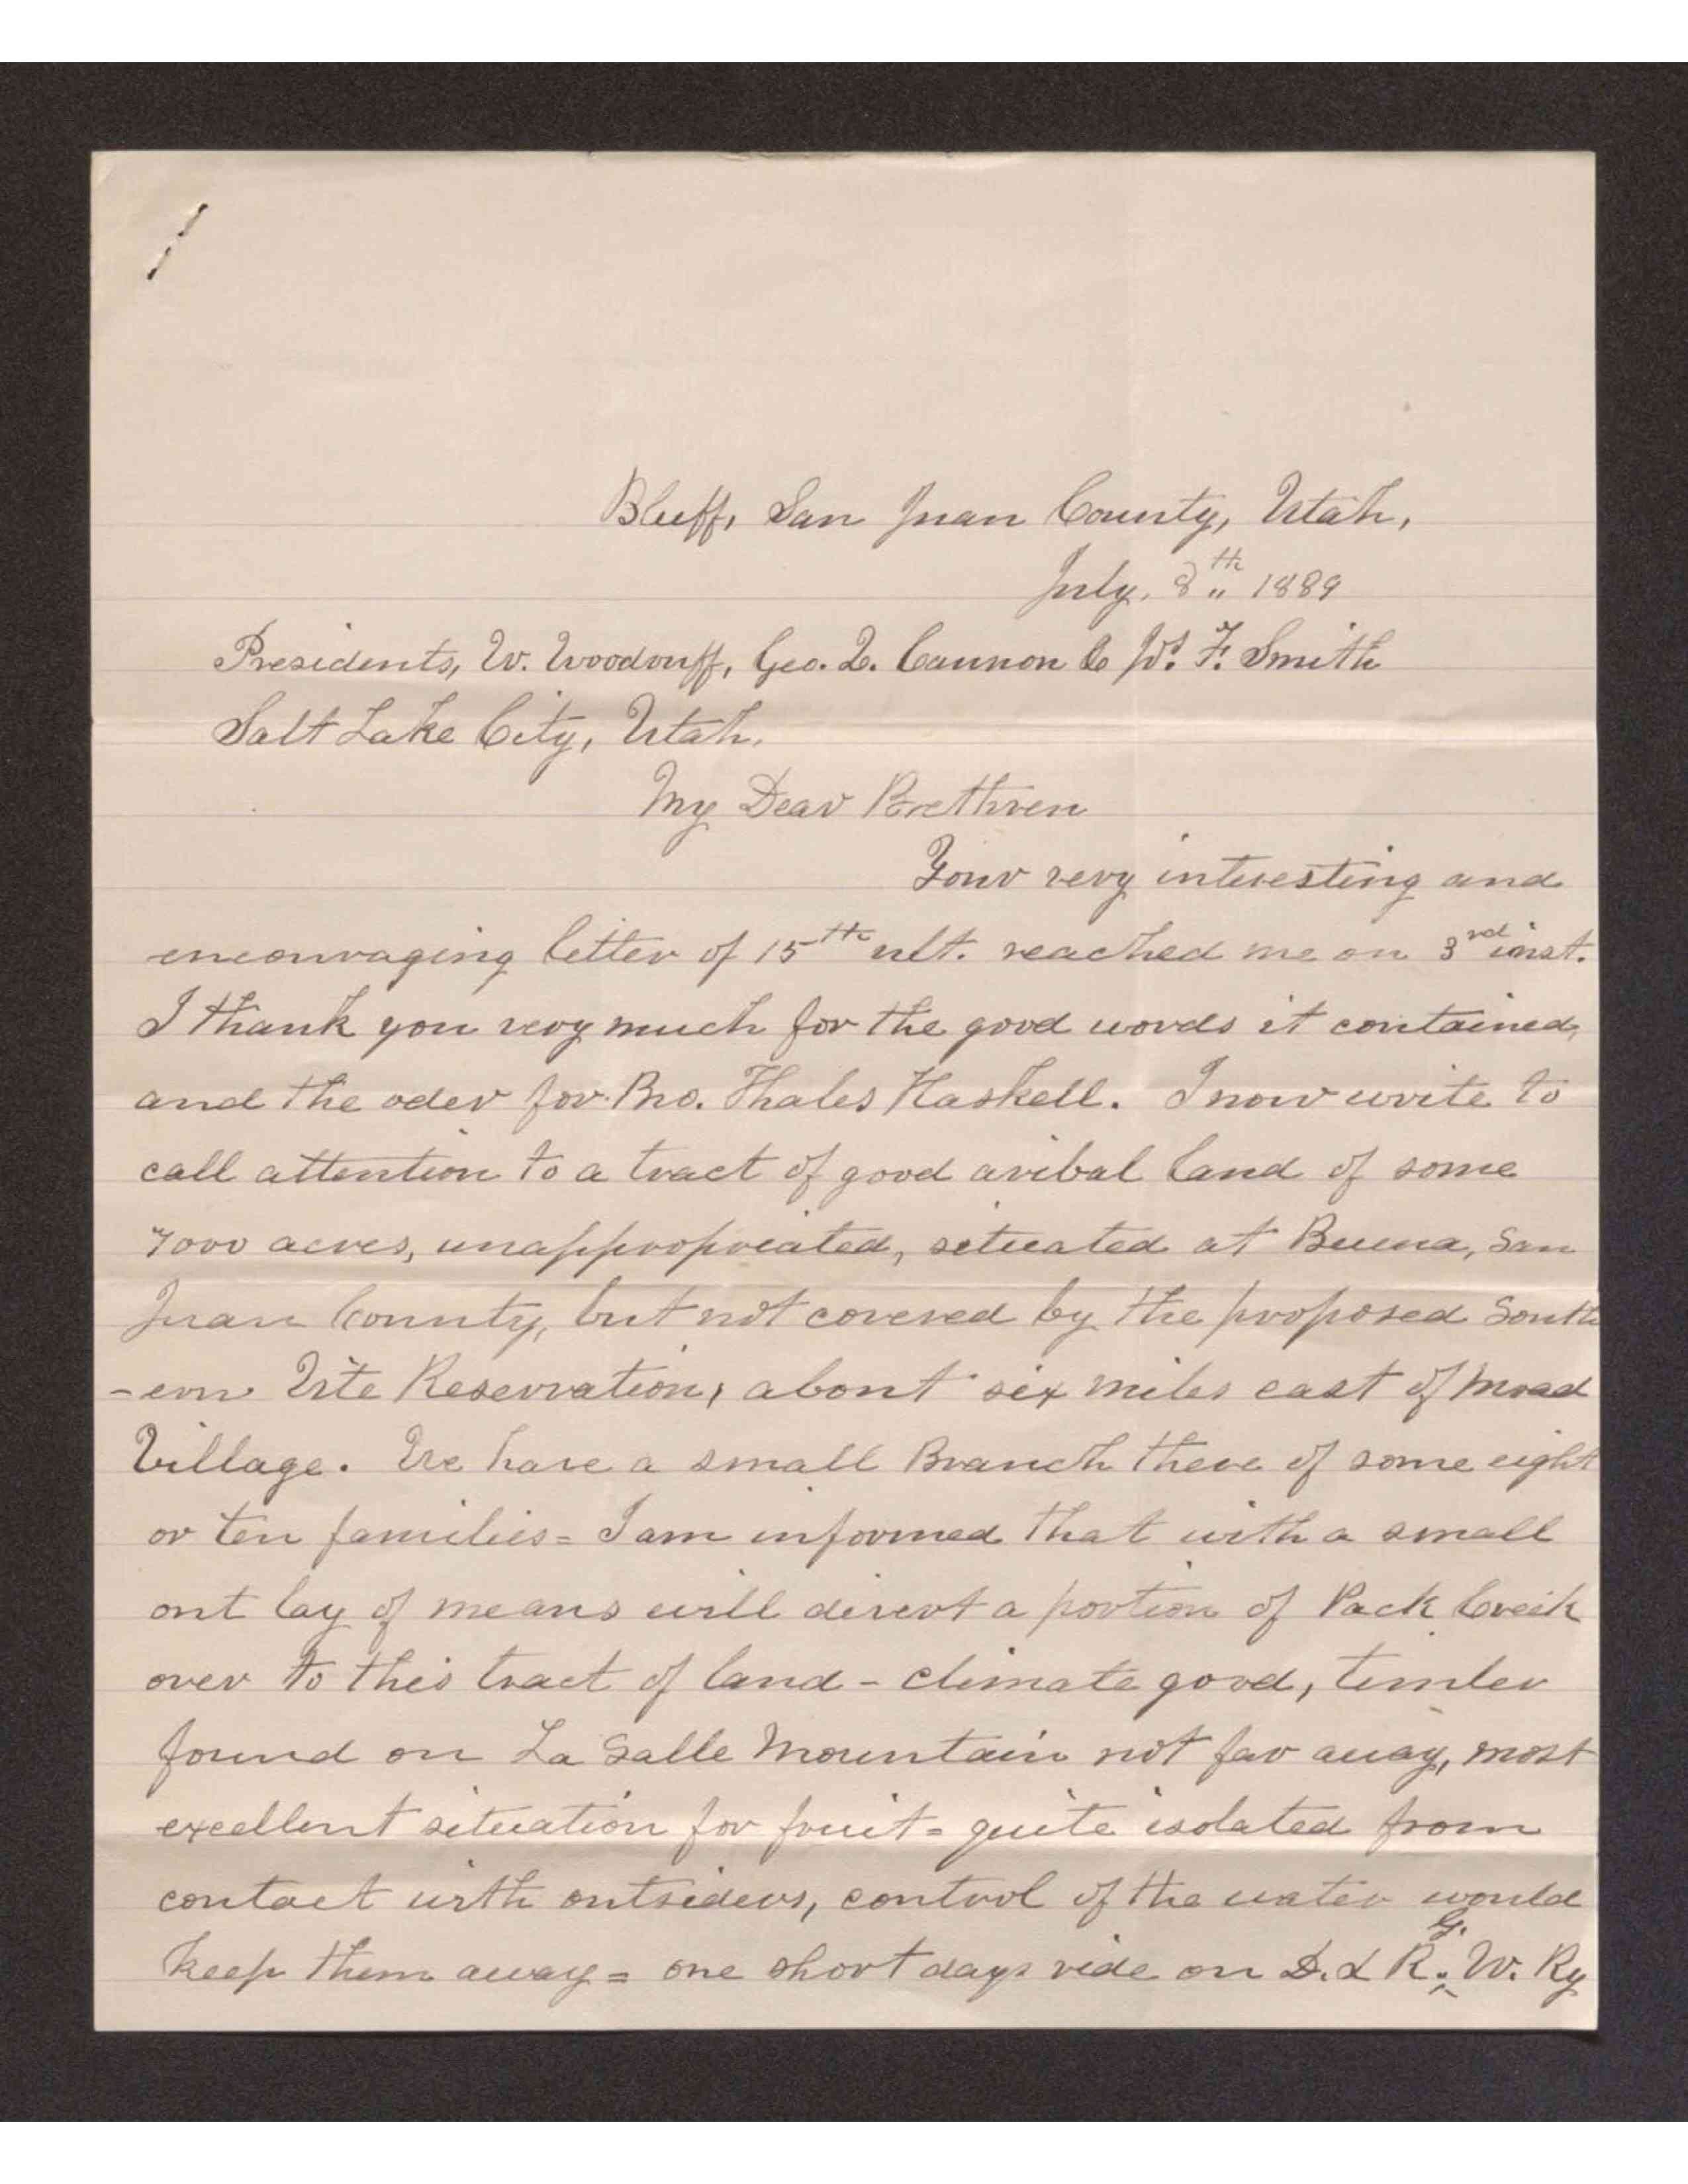 Bluff, San Juan County, Utah,
July, 8th 1889
Presidents, W. Woodruff, Geo. Q. Cannon & Jos. F. Smith
Salt Lake City, Utah.
My Dear Brethren
Your very interesting and
encouraging letter of 15th ult. reached me on 3rd inst.
I thank you very much for the good words it contained,
and the oder for Bro. Thales Haskell. I now write to
call attention to a tract of good aribal land of some
7000 acres, unappropriated, situated at Buena, San
Juan County, but not covered by the proposed South
-ern Ute Reservation, about six miles east of Moab
Village. We have a small Branch there of some eight
or ten families = I am informed that with a small
out lay of means will divert a portion of Pack Creek
over to this tract of land - climate good, timber
found on La Salle Mountain not far away, most
excellent situation for fruit = quite isolated from
contact with outsiders, control of the water would
keep them away = one short days ride on D. & R. G. W. Ry